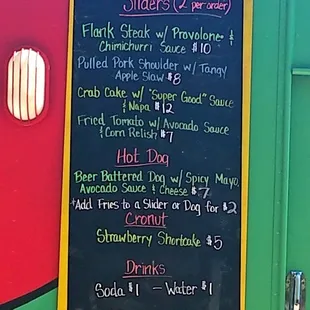 Sliders (2 per order)
Flank Steak w/ Provolone &
Chimichurri Sauce $10
Pulled Pork Shoulder w/ Tangy
Apple Slaw $8
Crab Cake w/ "Super Good" Sauce
& Napa $12
Fried Tomato w/ Avocado Sauce
& Corn Relish $7
Hot Dog
Beer Battered Dog w/ Spicy Mayo,
Avocado Sauce & Cheese $7
*Add Fries to a Slider or Dog for $2
Cronut
Strawberry Shortcake $5
Drinks
Soda $1 – Water $1